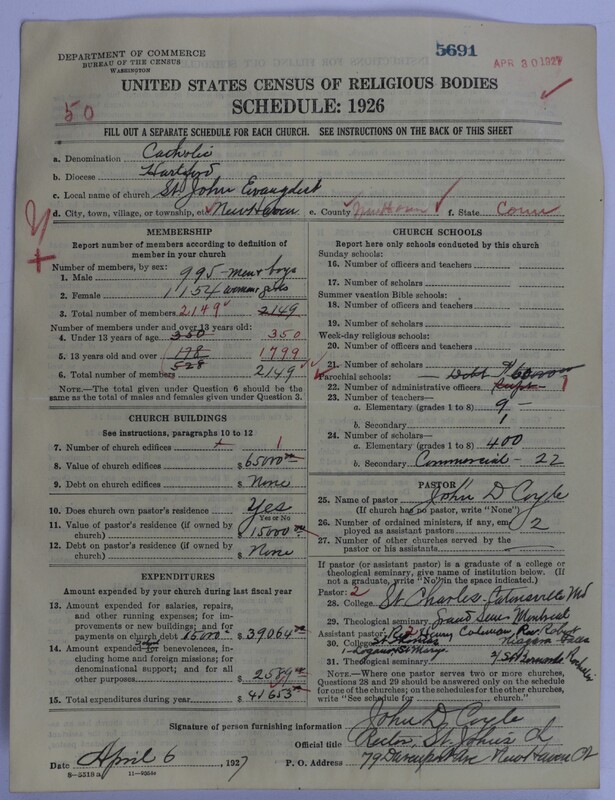 5691
APR 30 1927
DEPARTMENT OF COMMERCE
BUREAU OF THE CENSUS
WASHINGTON
UNITED STATES CENSUS OF RELIGIOUS BODIES
SCHEDULE: 1926
50
FILL OUT A SEPARATE SCHEDULE FOR EACH CHURCH. SEE INSTRUCTIONS ON THE BACK OF THIS SHEET
a. Denomination Catholic
b. Diocese Hartford
c. Local name of church St John Evangelist
d. City, town, village, or township, etc New Haven e. County New Haven f. State Conn
MEMBERSHIP
Report number of members according to definition of
member in your church
Number of members, by sex:
1. Male 995 - men & boys
2. Female 1154 women & girls
3. Total number of members 2149 2149
Number of members under and over 13 years old:
4. Under 13 years of age 350 350
5. 13 years old and over 178 1799
6. Total number of members 528 2149
NOTE.—The total given under Question 6 should be the
same as the total of males and females given under Question 3.
CHURCH BUILDINGS
See instructions, paragraphs 10 to 12
7. Number of church edifices 1
8. Value of church edifices $ 65000
9. Debt on church edifices $ None
10. Does church own pastor's residence Yes
Yes or No
11. Value of pastor's residence (if owned by
church) $ 15000
12. Debt on pastor's residence (if owned by
church) $ None
EXPENDITURES
Amount expended by your church during last fiscal year
13. Amount expended for salaries, repairs,
and other running expenses; for im-
provements or new building; and for
payments on church debt 15,000 $ 39064
14. Amount expended for benevolences,
including home and foreign missions; for
denominational support; and for all
other purposes $ 2589
15. Total expenditures during year $ 41653
CHURCH SCHOOLS
Report here only schools conducted by this church
Sunday schools:
16. Number of officers and teachers
17. Number of scholars
Summer vacation Bible schools:
18. Number of officers and teachers
19. Number of scholars
Week-day religious schools:
20. Number of officers and teachers
21. Number of scholars
Parochial schools: — Debt
22. Number of administrative officers 1
23. Number of teachers—
a. Elementary (grades 1 to 8) 9 -
b. Secondary 1
24. Number of scholars—
a. Elementary (grades 1 to 8) 400
b. Secondary Commercial - 22
PASTOR
25. Name of pastor John D Coyle
(If church has no pastor, write "None")
26. Number of ordained ministers, if any, em-
ployed as assistant pastors 2
27. Number of other churches served by the
pastor or his assistants
If pastor (or assistant pastor) is a graduate of a college or
theological seminary, give name of institution below. (If
not a graduate, write "No" in the space indicated.)
Pastor: 2
28. College St Charles - Catonsville Md
29. Theological seminary Grand Sem - Montreal
Assistant pastor: 2 Henny Coleman, Rev Robert
30. College St Thomas Niagara Falls
31. Theological seminary 2/ St Bernards Rochester
NOTE.—Where one pastor serves two or more churches,
Questions 28 and 29 should be answered only on the schedule
for one of the churches; on the schedules for the other churches,
write "See schedule for church."
Signature of person furnishing information John D. Coyle
Official title Rector, St John's Ch
Date April 6, 1927 P. O. Address 79 Davenport Ave New Haven Ct
8—5518a 11—9558